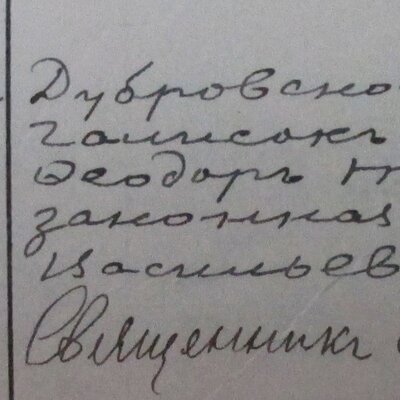 Дубровско
Галисокъ
Ѳеодоръ Н
законная
Васильев
Священникъ